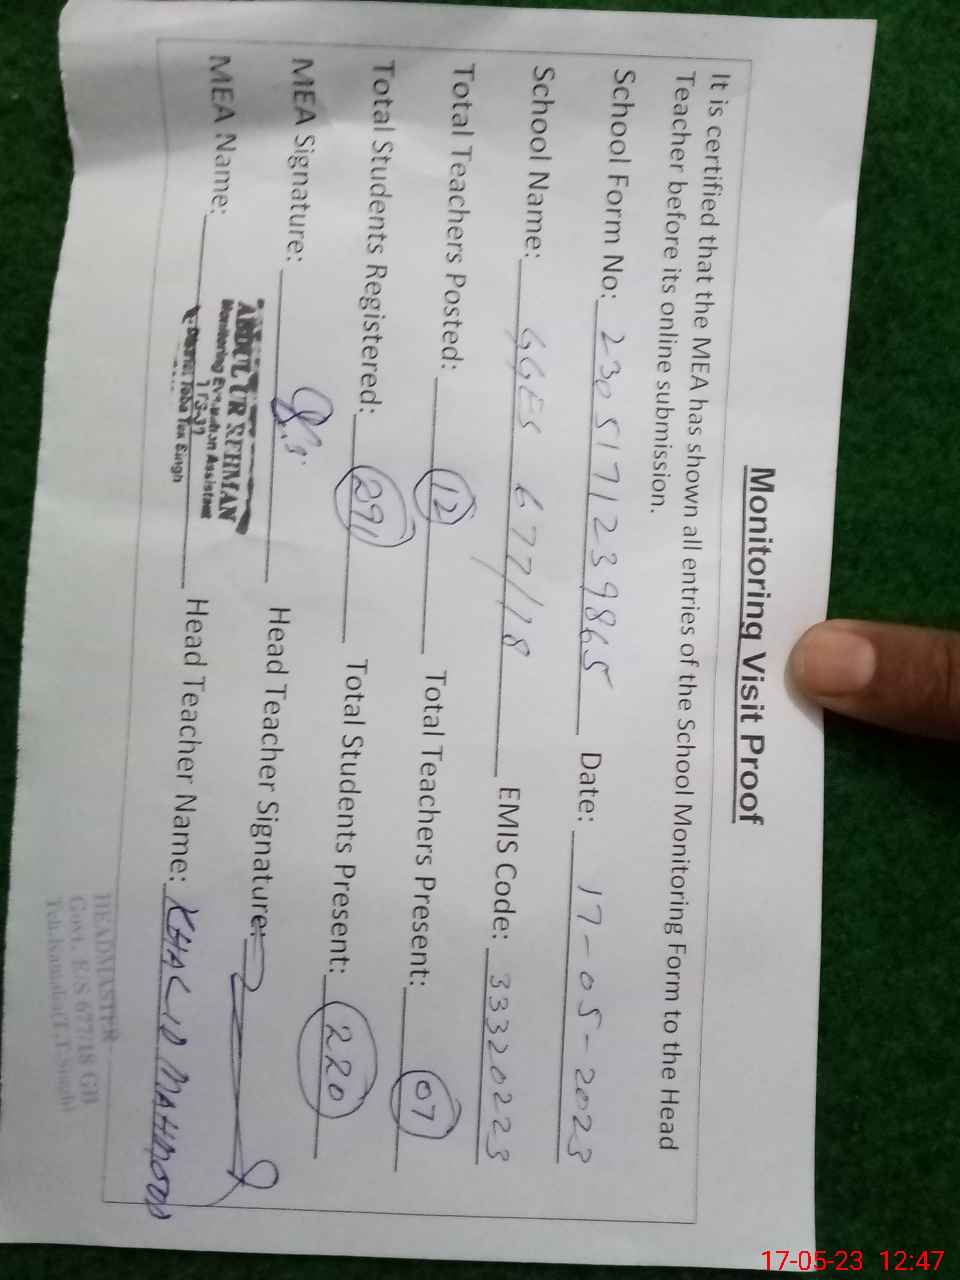 Monitoring Visit Proof
It is certified that the MEA has shown all entries of the School Monitoring Form to the Head
Teacher before its online submission.
School Form No: 2305171239865 Date: 17-05-2023
School Name: GGES 677/18 EMIS Code: 33320223
Total Teachers Posted: 12 Total Teachers Present: 07
Total Students Registered: 291 Total Students Present: 220
MEA Signature: Head Teacher Signature:
MEA Name: Head Teacher Name: KHALID MAHMOOD
ABDUL UR REHMAN
Monitoring Evaluation Assistant
District Toba Tek Singh
HEADMASTER
Govt. E/S 677/18 GB
17-05-23 12:47